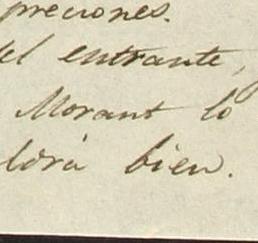 preciones.
del entrante,
Morant lo
drá bien.